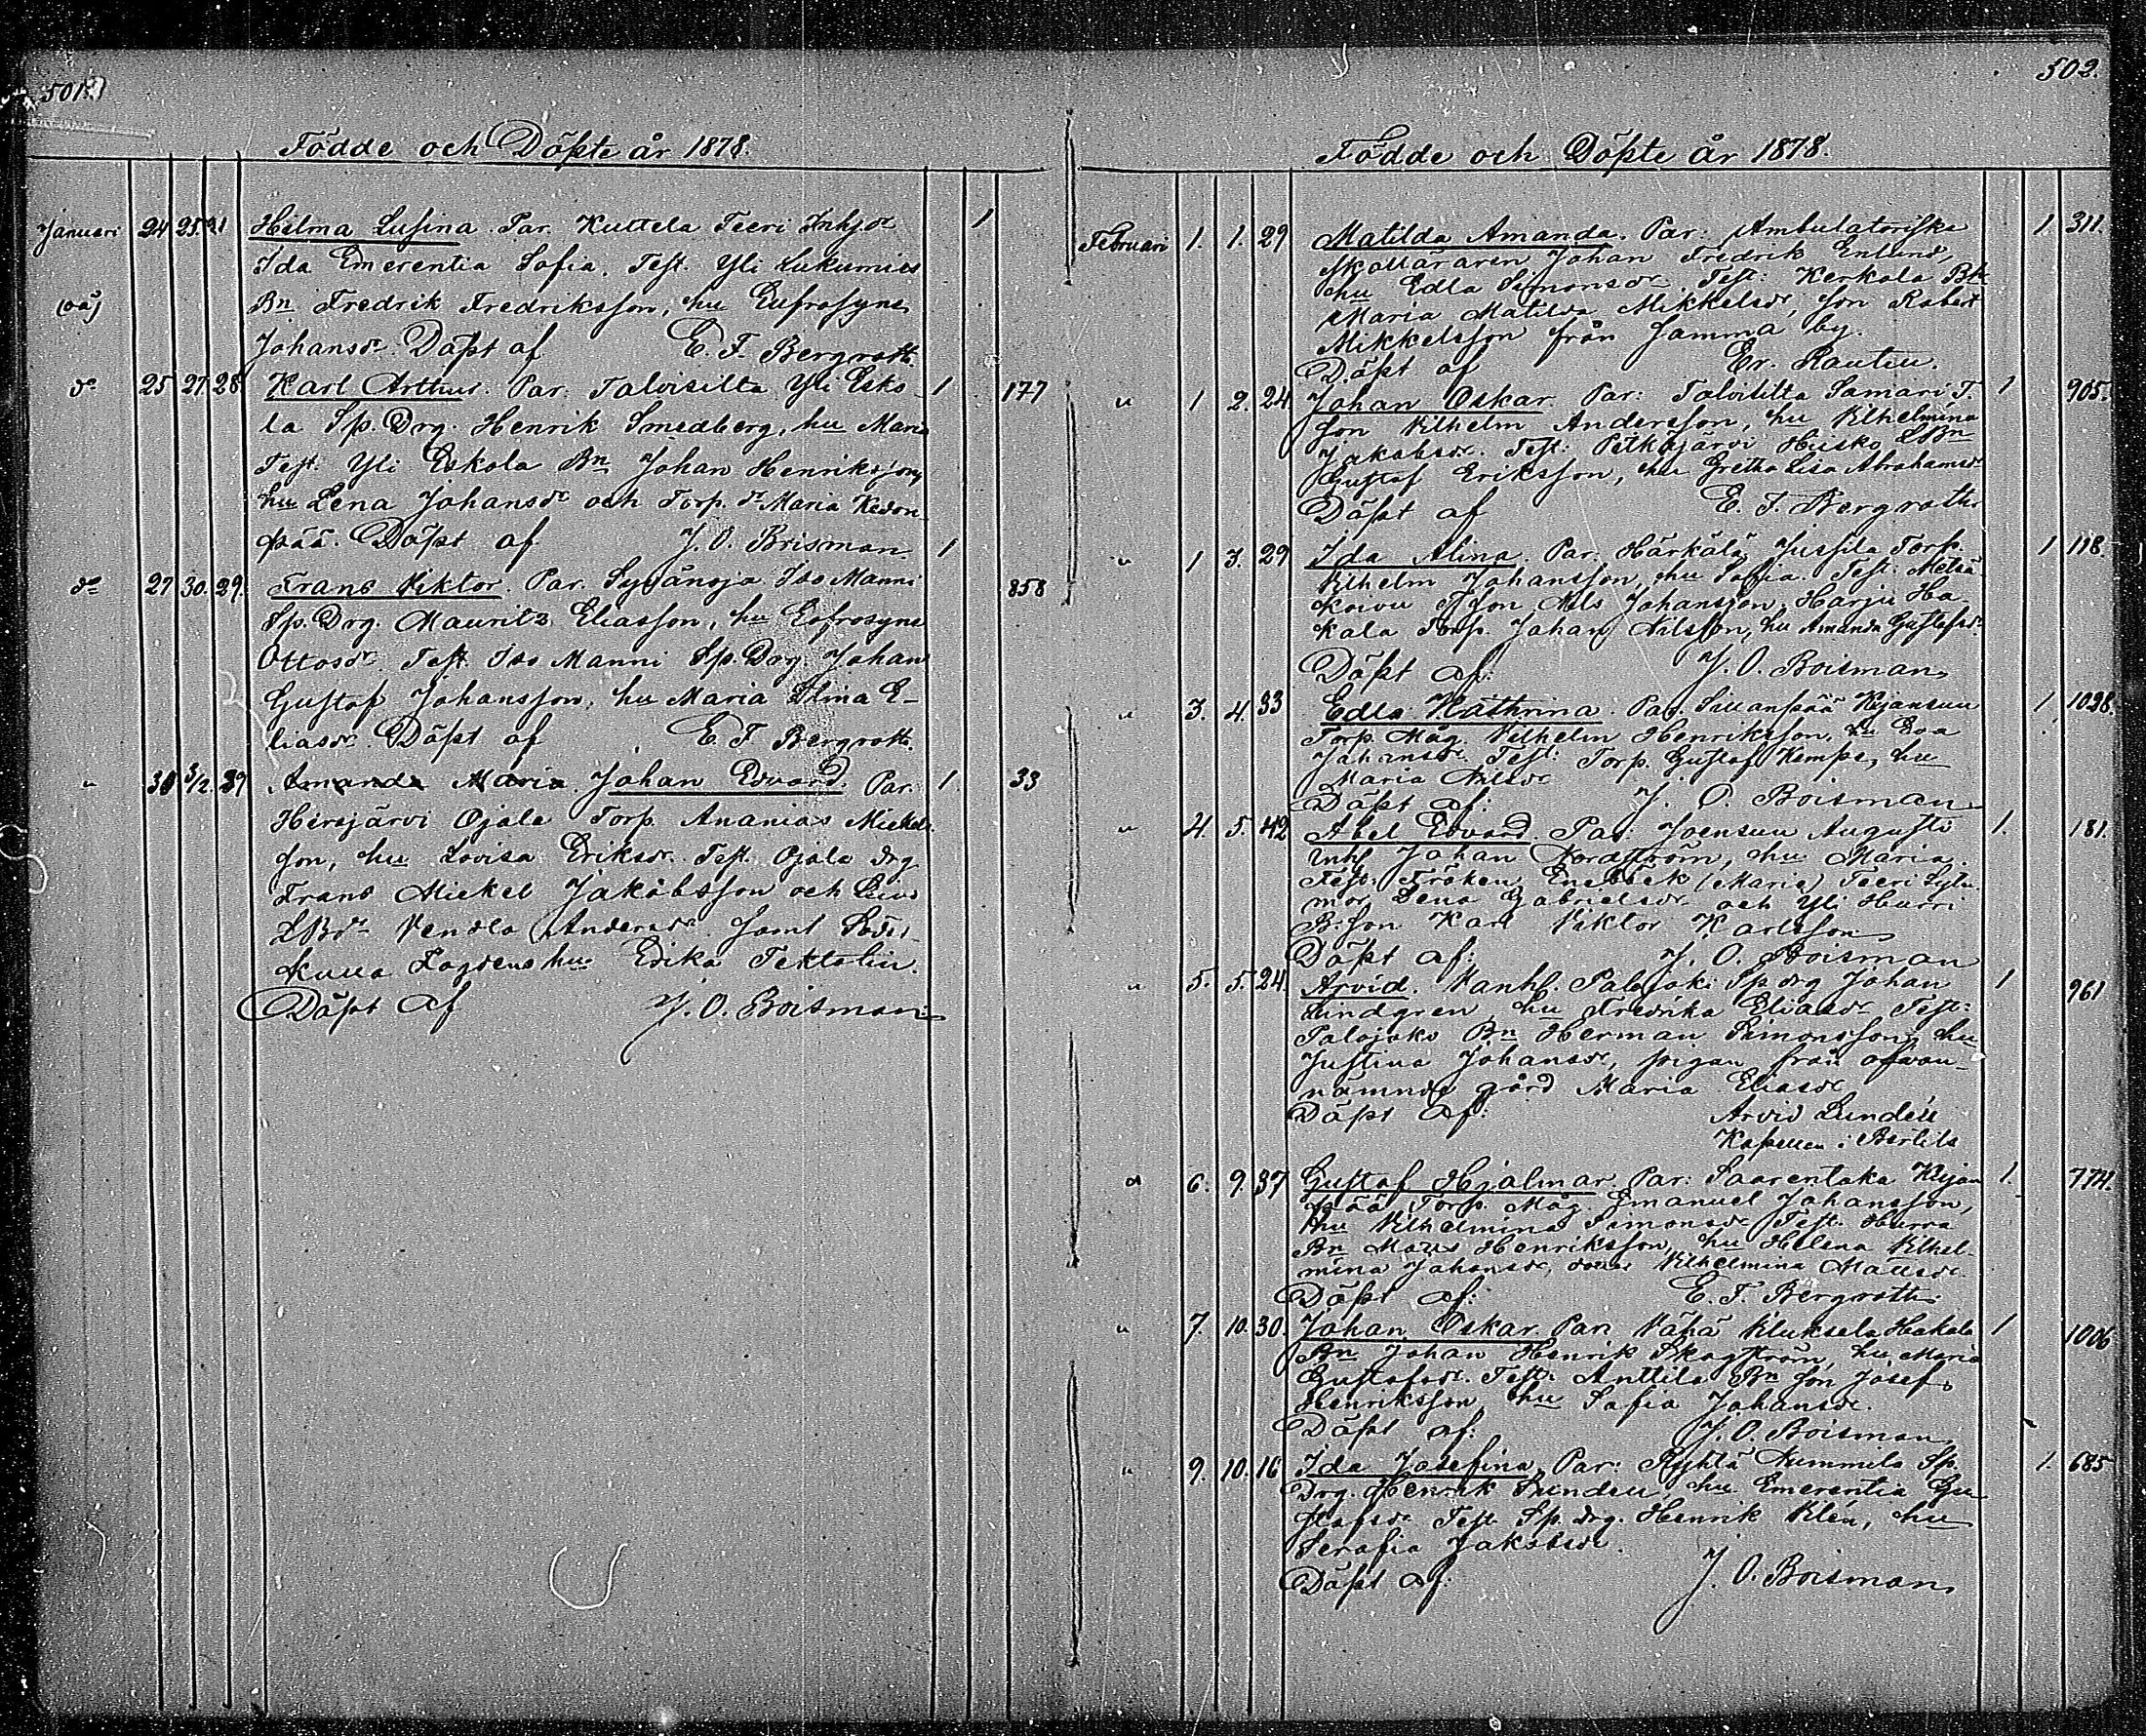 501.
Födde och Döpte år 1878.
Januari 24 25. 21 Hilma Lusina. Par. Kuttela Teeri Inhjdr 1
Ida Emerentia Sofia. Test. Yli Lukumies
(oä) Bn Fredrik Fredriksson, hu Eufrosyne
Johansdr. Döpt af E. F. Bergroth.
do 25 27. 28. Karl Arthur. Par. Talvisilta Yli Esko- 1 177
la Sp. Drg. Henrik Smedberg, hu Maria
Test. Yli Eskola Bn Johan Henriksson,
hu Lena Johansdr och Torp. dr Maria Kedon-
pää. Döpt af J. O. Boisman
do 27 30. 29. Frans Viktor. Par. Sysänoja Iso Manni 1 858
Sp. Drg. Mauritz Eliasson, hu Eofrosyne
Ottosdr. Test. Iso Manni Sp. Drg. Johan
Gustaf Johansson, hu Maria Alina E-
liasdr. Döpt af E. F. Bergroth.
" 30 3/2. 29 Amanda Maria. Johan Edvard. Par. 1. 33
Hirsjärvi Ojala Torp. Ananias Mickels-
son, hu Lovisa Eriksdr. Test. Ojala drg
Frans Mickel Jakobsson och
LBdr Vendla Andersdr. samt Söder-
kulla hu Erika Tektolin.
Döpt af J. O. Boisman.
502.
Födde och Döpte År 1878.
Februari 1. 1. 29 Matilda Amanda. Par: Ambulatoriska 1 311.
Skolläraren Johan Fredrik Enlund,
hu Edla Simonsdr. Test: Kerkola Bdr
Maria Matilda Mikkelsdr, son Robert
Mikkelsson från Jamma by.
Döpt af Er. Rautiu.
" 1 2. 24 Johan Oskar. Par: Talvisilta Samari T. 1 905.
son Vilhelm Andersson, hu Vilhelmina
Jakobsdr. Test: Pitkäjärvi Husko LBn
Gustaf Eriksson, hu Gretha Lisa Abrahamsdr
Döpt af E. F. Bergroth
" 1 3. 29 Ida Alina. Par. Härkälä Jussila Torp. 1 118.
Vilhelm Johansson, hu Sofia. Test: Metsä
koivu T son Nils Johansson, Harju Ha-
kala Torp. Johan Nilsson, hu Amanda Gustafsdr.
Döpt af: J. O. Boisman
" 3. 4. 33 Edla Kathrina. Par: Suuanpää Kyansuu 1 1028.
Torp. Måg. Vilhelm Henriksson, hu Eva
Johansdr. Test: Torp. Gustaf Kempe, hu
Maria Nilsdr
Döpt af: J. O. Boisman
" 4. 5. 42 Abel Edvard. Par: Joensuu Augusti 1. 181.
Inh. Johan Nordström, hu Maria.
Test. Fröken Enebäck (Maria) Teeri
mor Lena Gabrielsdr och Yli Hurri
B. son Karl Viktor Karlsson
Döpt af: J. O. Boisman
" 5. 5. 24. Arvid. Vanh. Palojoki Sp drg Johan 1 961
Lindgren, hu Fredrika Eliasdr Test:
Palojoki Bn Herman Simonsson, hu
Justina Johansdr, pigan från ofvan-
nämnde gård Maria Eliasdr
Döpt af: Arvid Lundén
Kapellan i Bertils
" 6. 9. 37 Gustaf Hjalmar. Par: Saarentaka Kyan 1. 774.
pää Torp. Måg. Emanuel Johansson,
hu Vilhelmina Simonsdr Test. Hurra
Bn Matts Henriksson, hu Helena Vilhel-
mina Johansdr, dotter Vilhelmina Mattsdr.
Döpt af: E. F. Bergroth.
" 7. 10. 30. Johan Oskar. Par: Vähä Hluksela Hakala 1 1006
Bn Johan Henrik Skogström, hu Maria
Gustafsdr. Test: Anttila Bn son Josef
Henriksson, hu Sofia Johansdr.
Döpt af: J. O. Boisman
" 9. 10. 16 Ida Josefina. Par: Ryhtä Nummila Sp. 1 685
Drg. Henrik Sunden, hu Emerentia Gu
stafsdr Test. Sp. drg. Henrik Klén, hu
Serafia Jakobsdr.
Döpt af: J. O. Boisman